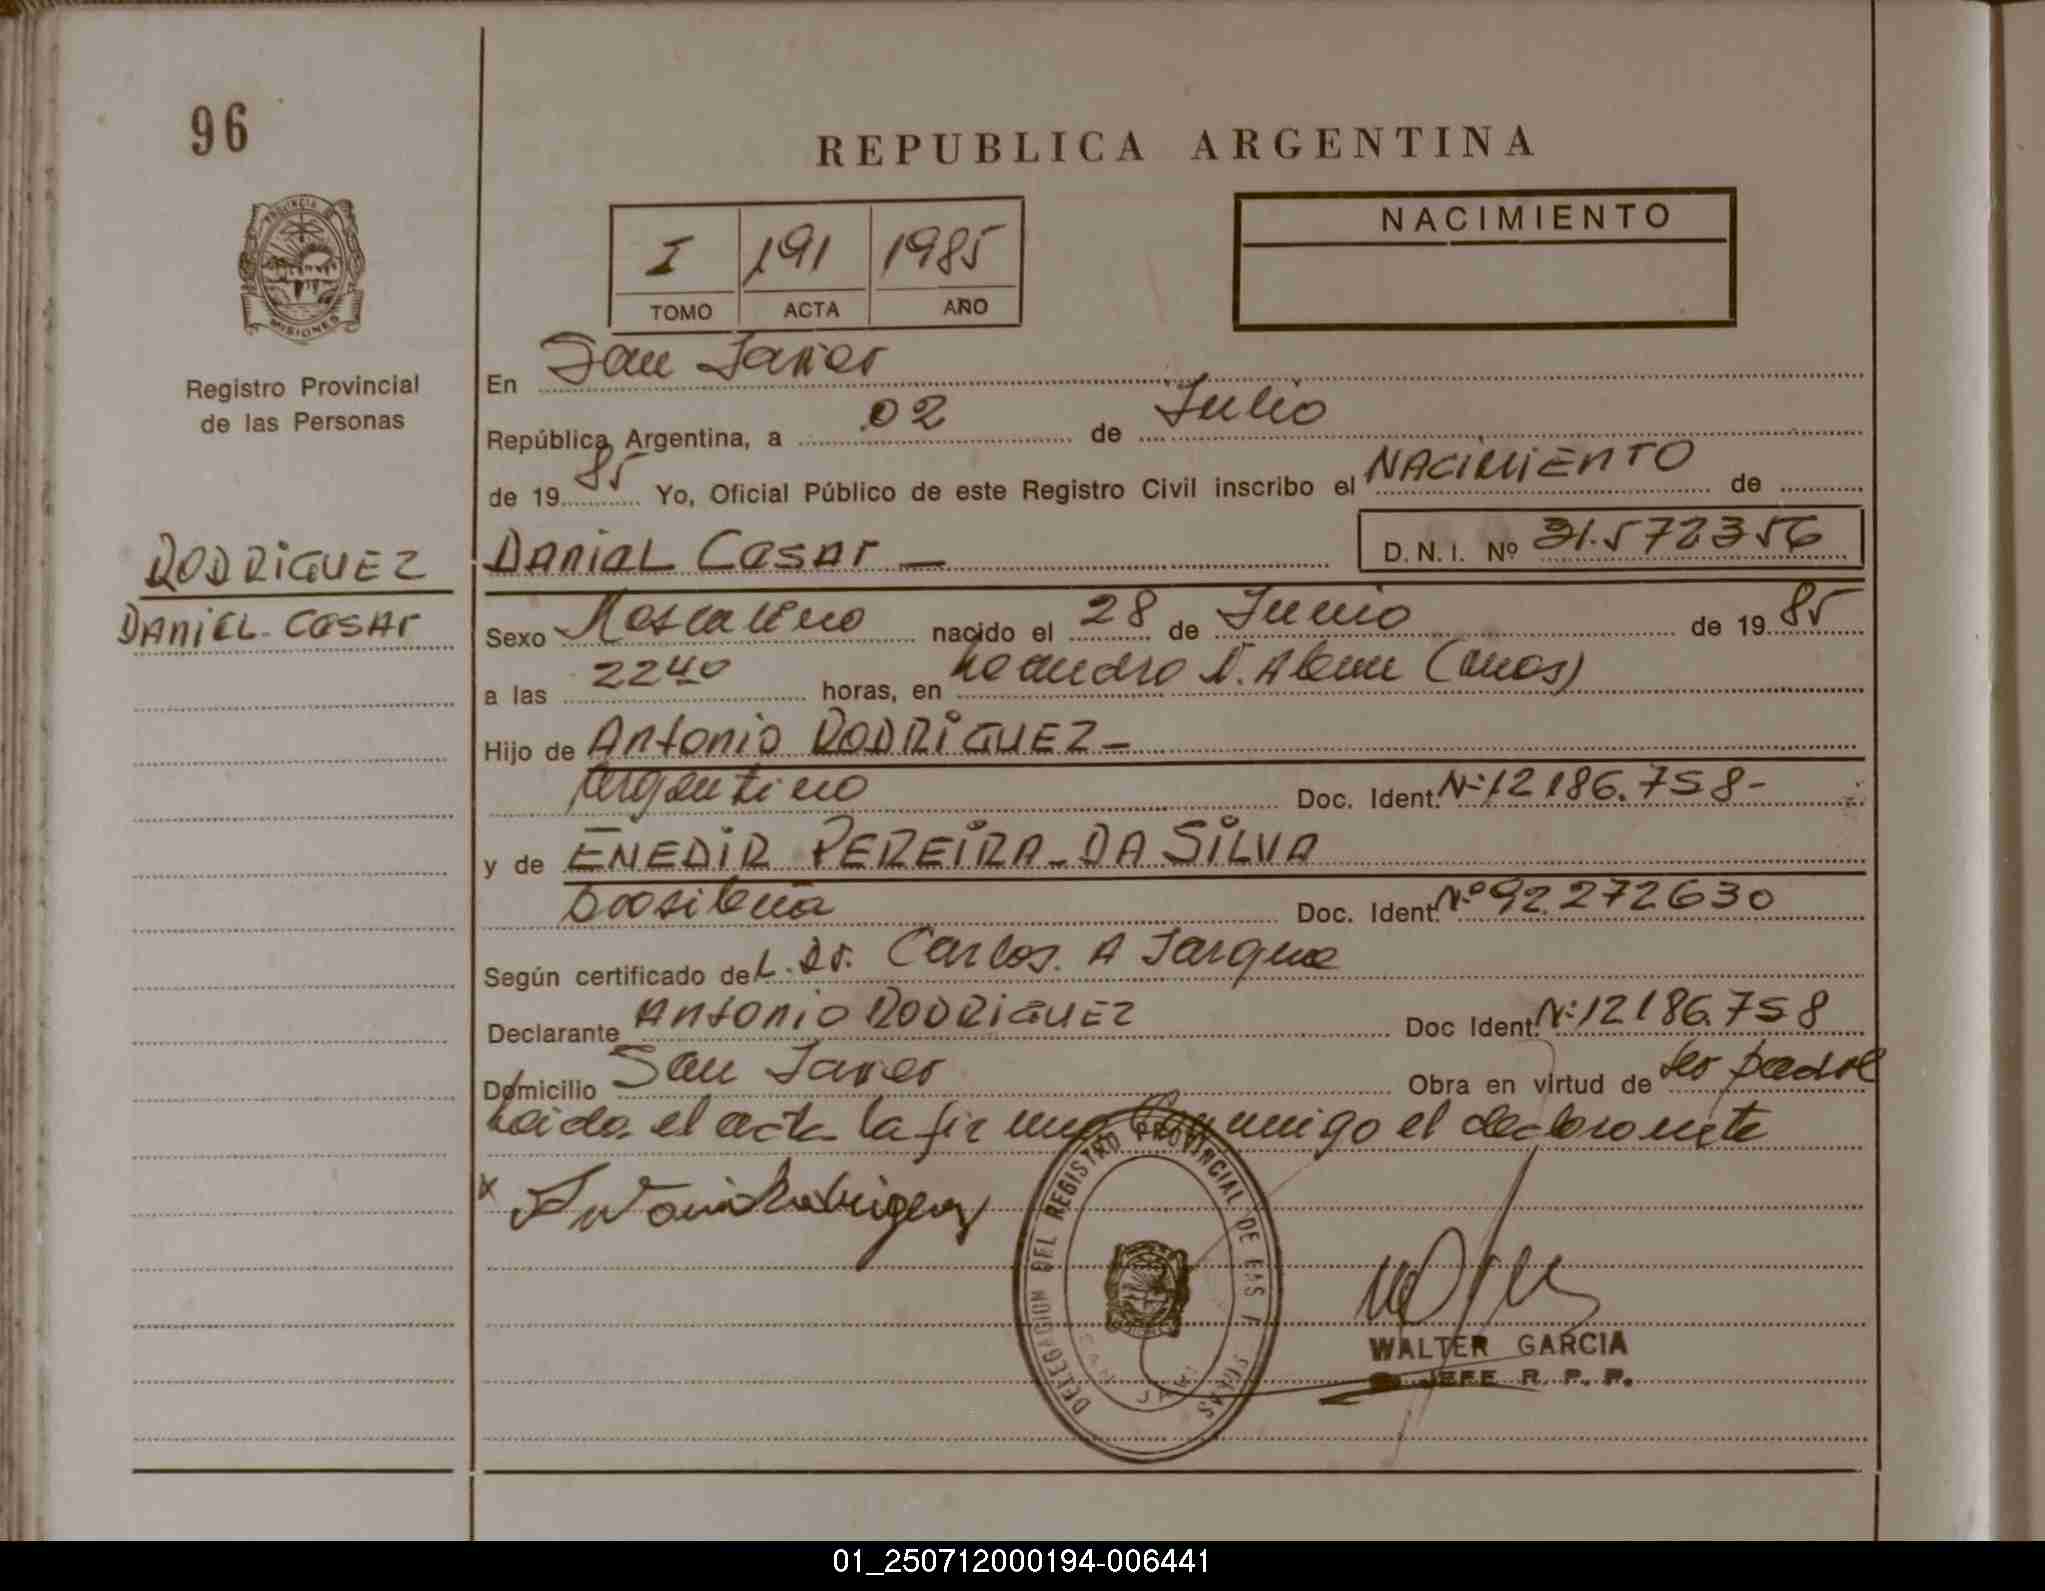 96
REPUBLICA ARGENTINA
PROVINCIA DE
MISIONES
Registro Provincial
de las Personas
I 191 1985
TOMO ACTA AÑO
NACIMIENTO
En San Javier
República Argentina, a 02 de Julio
de 1985 Yo, Oficial Público de este Registro Civil inscribo el NACIMIENTO de
RODRIGUEZ
DANIEL CESAR
DANIEL CESAR — D.N.I. Nº 31.572356
Sexo Masculino nacido el 28 de Junio de 1985
a las 2240 horas, en Leandro N. Alem (mnes)
Hijo de Antonio RODRIGUEZ —
Argentino Doc. Ident. Nº 12186.758-
y de ENEDIR PEREIRA - DA SILVA
brasileña Doc. Ident. Nº 92.272630
Según certificado del Dr. Carlos A
Declarante Antonio RODRIGUEZ Doc Ident. Nº 12186.758
Domicilio San Javier Obra en virtud de ser padre
Leida el acta la firma Conmigo el declarante
x Antonio Rodriguez
DELEGACION DEL REGISTRO PROVINCIAL DE LAS P
SAN JAVI
WALTER GARCIA
JEFE R. P. P.
01_250712000194-006441